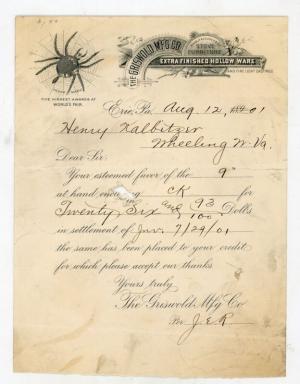 THE GRISWOLD MFG. CO.
EXTRA FINISHED HOLLOW WARE
AND FINE LIGHT CASTINGS
THE HIGHEST AWARDS AT
WORLD'S FAIR.
Erie, Pa. Aug. 12, 01
Henry Kalbitzer
Wheeling W. Va.
Dear Sir:
Your esteemed favor of the 9"
at hand enclosing CK for
Twenty Six and 93/100 Dolls.
in settlement of Inv. 7/29/01
the same has been placed to your credit
for which please accept our thanks.
Yours truly,
The Griswold Mfg Co
Per J. E. R